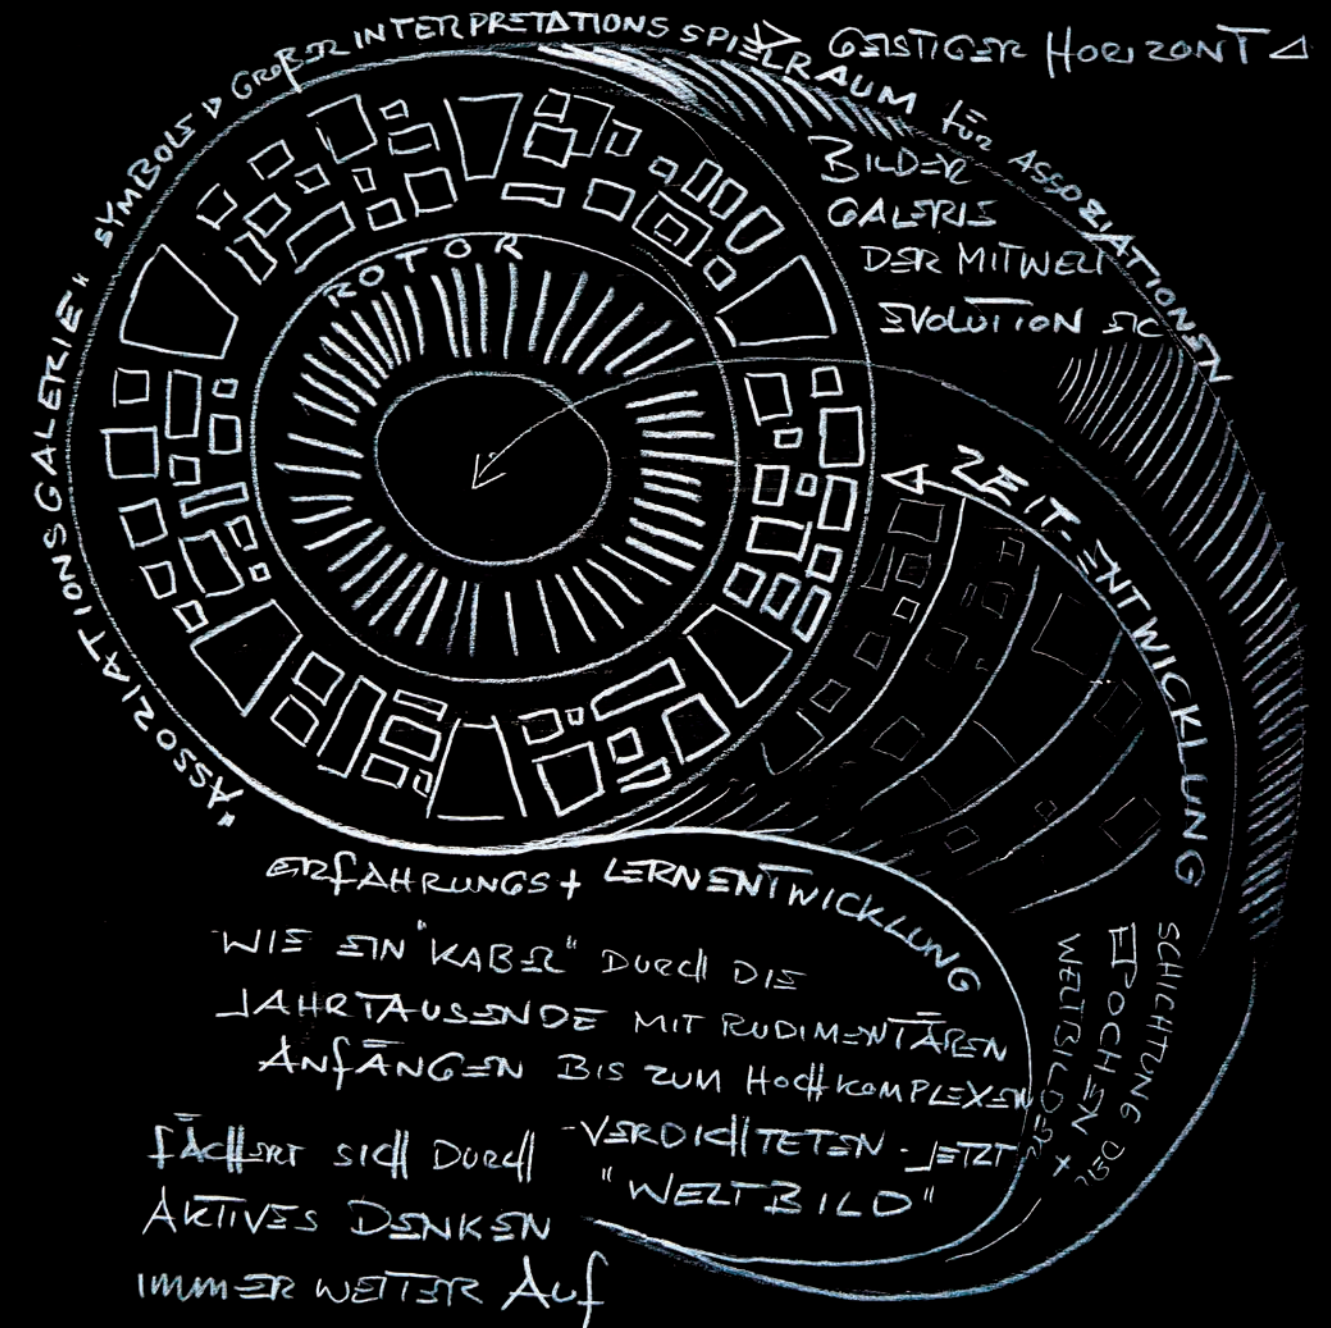 "ASSOZIATIONSGALERIE" SYMBOLS ▷ GROßER INTERPRETATIONSSPIELRAUM FÜR ASSOZIATIONEN
GEISTIGER HORIZONT
BILDER
GALERIE
DER MITWELT
EVOLUTION ETC
ROTOR
ZEIT-ENTWICKLUNG
ERFAHRUNGS+ LERNENTWICKLUNG
WIE EIN "KABEL" DURCH DIE
JAHRTAUSENDE MIT RUDIMENTÄREN
ANFÄNGEN BIS ZUM HOCHKOMPLEXEN
-VERDICHTETEN-JETZT
"WELTBILD"
FÄCHERT SICH DURCH
AKTIVES DENKEN
IMMER WEITER AUF
SCHICHTUNG DER
EPOCHEN +
WELTBILDER